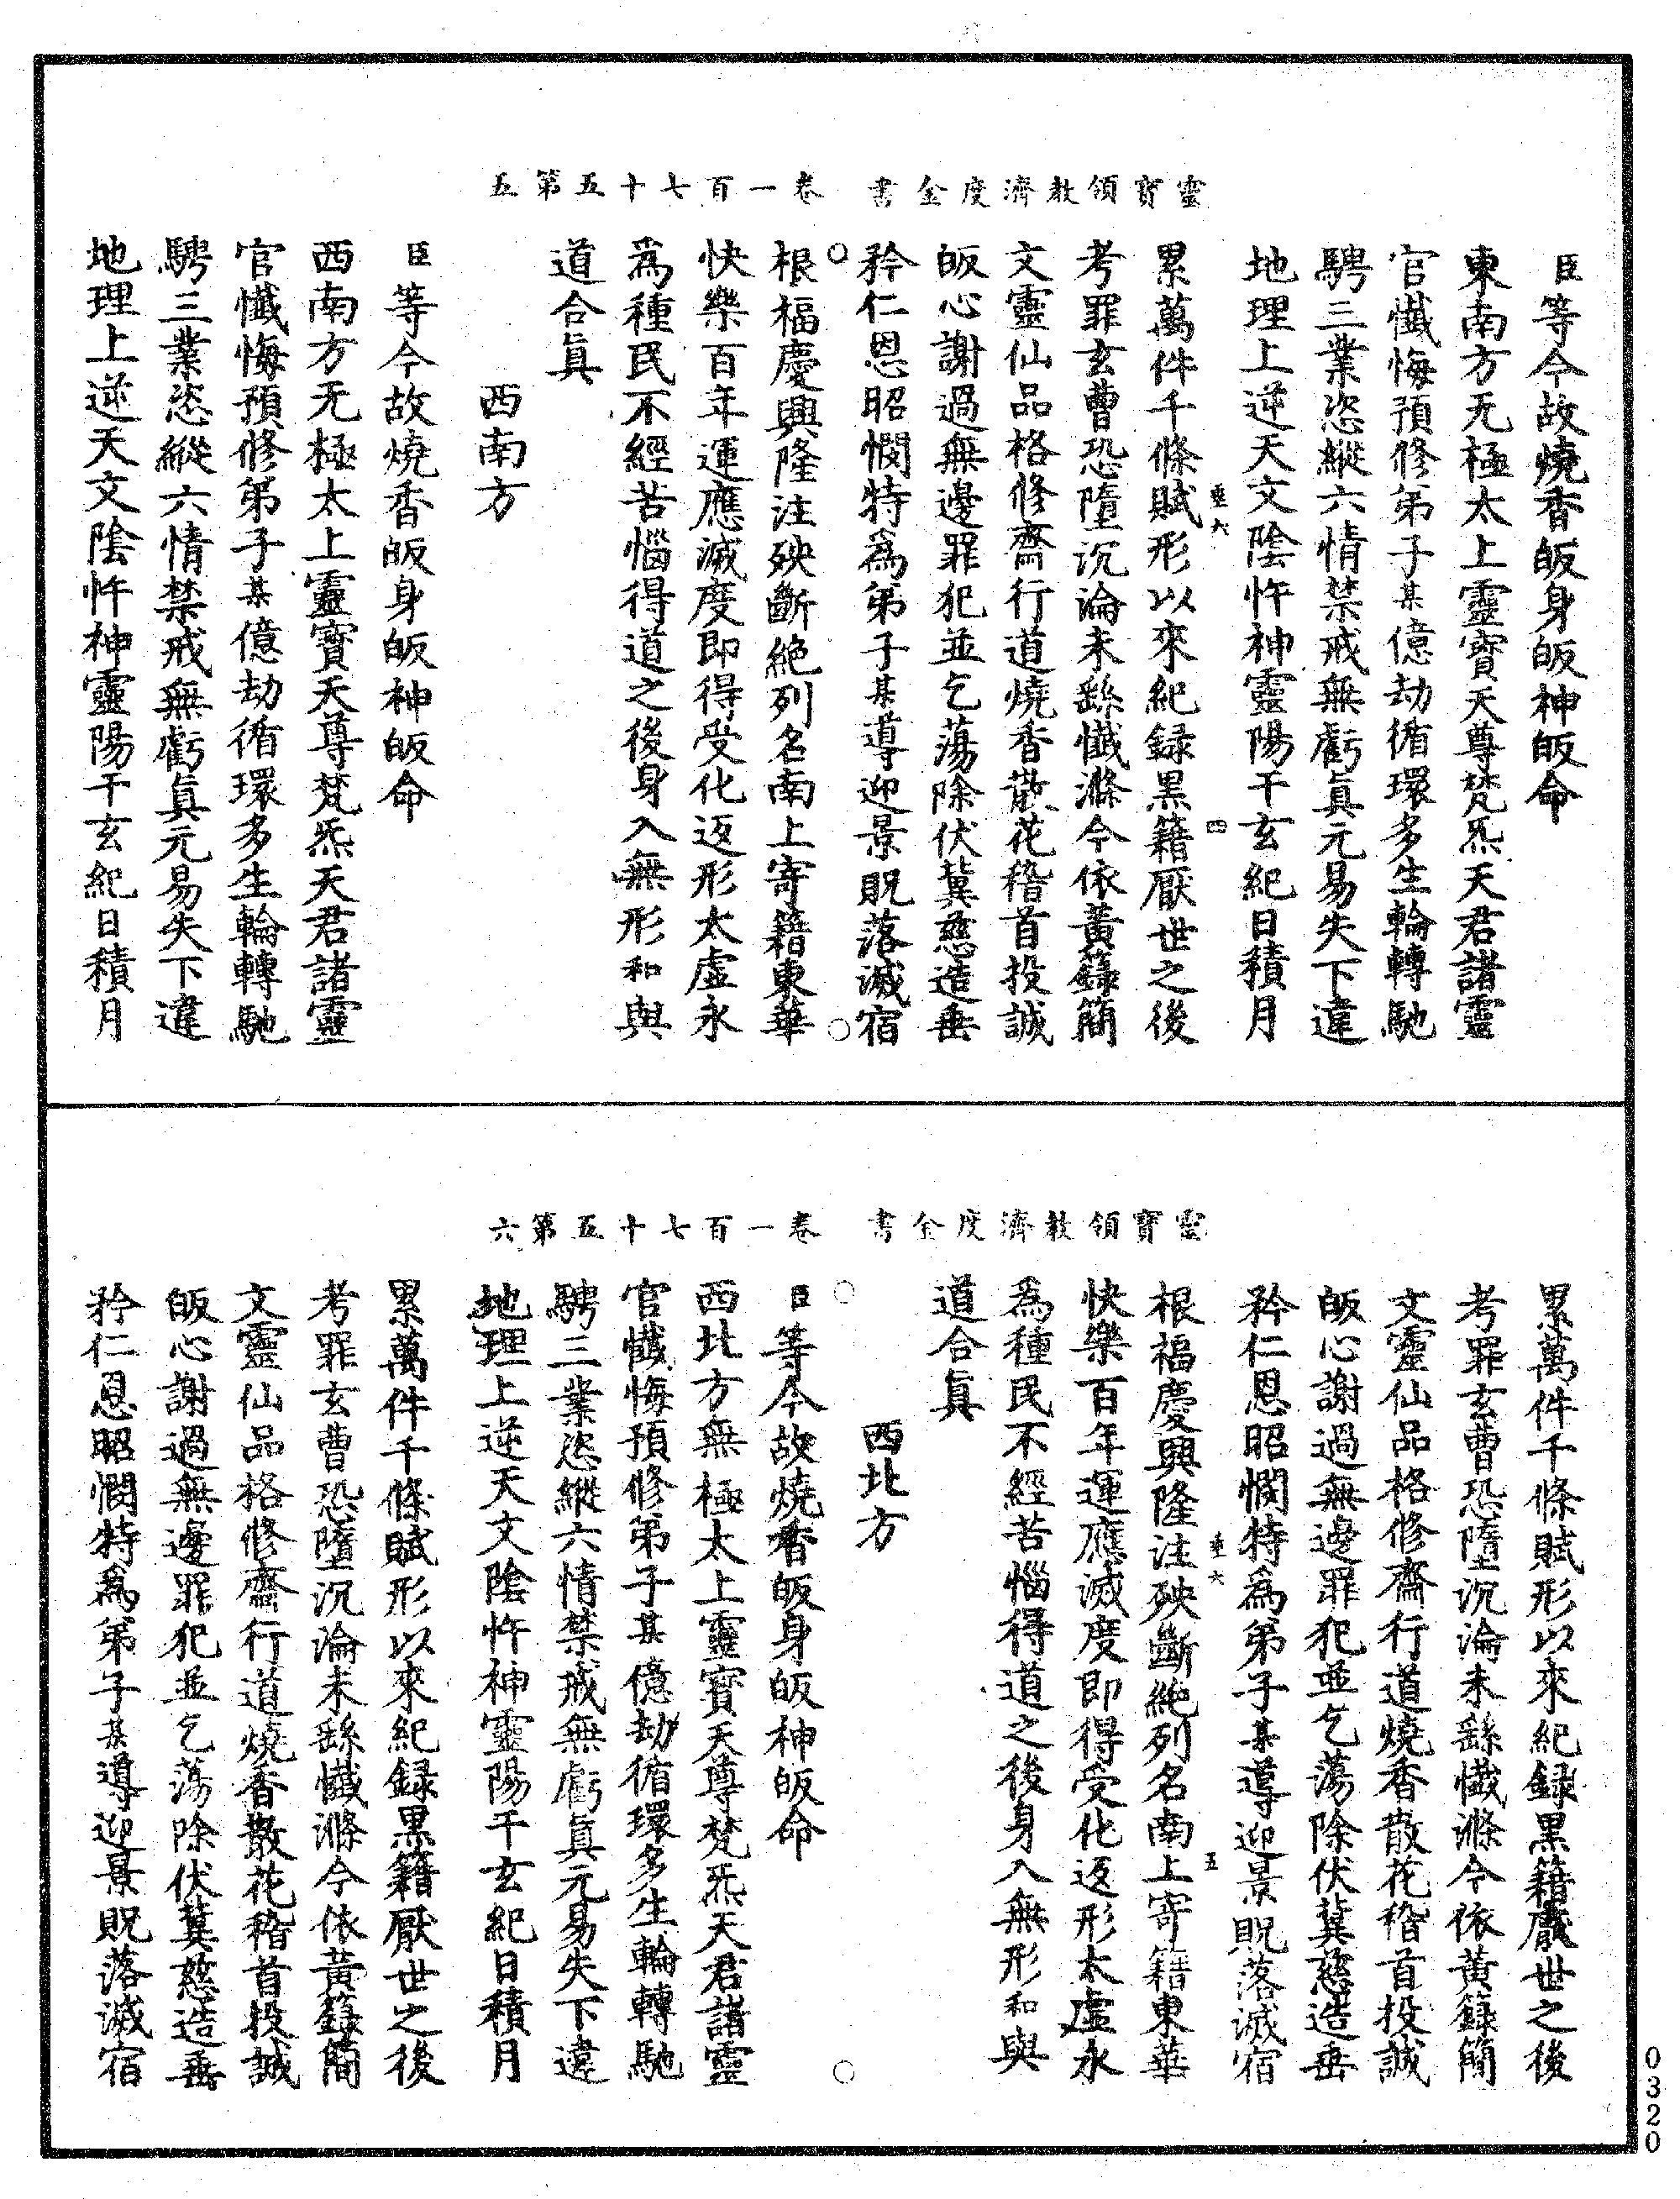 靈寶領教濟度金書　卷一百七十五第五
臣等今故燒香皈身皈神皈命
東南方无極太上靈寶天尊梵炁天君諸靈
官懺悔預修弟子某億劫循環多生輪轉馳
騁三業恣縱六情禁戒無虧眞元易失下違
地理上逆天文陰忤神靈陽干玄紀日積月
累萬件千條賦形以來紀録黑籍厭世之後
垂六　四
考罪玄曹恐墮沉淪未繇懺滌今依黃籙簡
文靈仙品格修齋行道燒香散花稽首投誠
皈心謝過無邊罪犯並乞蕩除伏冀慈造垂
矜仁恩昭憫特為弟子某導迎景貺落滅宿
根福慶興隆注殃斷絕列名南上寄籍東華
快樂百年運應滅度即得受化返形太虛永
為種民不經苦惱得道之後身入無形和與
道合眞
西南方
臣等今故燒香皈身皈神皈命
西南方无極太上靈寶天尊梵炁天君諸靈
官懺悔預修弟子某億劫循環多生輪轉馳
騁三業恣縱六情禁戒無虧眞元易失下違
地理上逆天文陰忤神靈陽干玄紀日積月
靈寶領教濟度金書　卷一百七十五第六
累萬件千條賦形以來紀録黑籍厭世之後
考罪玄曹恐墮沉淪未繇懺滌今依黃籙簡
文靈仙品格修齋行道燒香散花稽首投誠
皈心謝過無邊罪犯並乞蕩除伏冀慈造垂
矜仁恩昭憫特為弟子某導迎景貺落滅宿
垂六　五
根福慶興隆注殃斷絕列名南上寄籍東華
快樂百年運應滅度即得受化返形太虛永
為種民不經苦惱得道之後身入無形和與
道合眞
西北方
臣等今故燒香皈身皈神皈命
西北方無極太上靈寶天尊梵炁天君諸靈
官懺悔預修弟子某億劫循環多生輪轉馳
騁三業恣縱六情禁戒無虧眞元易失下違
地理上逆天文陰忤神靈陽干玄紀日積月
累萬件千條賦形以來紀録黑籍厭世之後
考罪玄曹恐墮沉淪未繇懺滌今依黃籙簡
文靈仙品格修齋行道燒香散花稽首投誠
皈心謝過無邊罪犯並乞蕩除伏冀慈造垂
矜仁恩昭憫特為弟子某導迎景貺落滅宿
0320